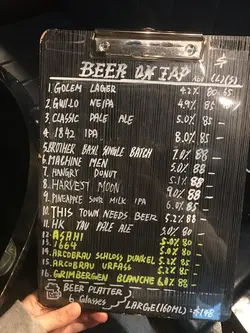 BEER ON TAP
1. GOLEM LAGER 4.2% 80 65
2. GWILO NEIPA 4.9% 85 -
3. CLASSIC PALE ALE 5.0% 85 -
4. 1842 IPA 8.0% 85 -
5. BROTHER SINGLE BATCH 7.0% 88 -
6. MACHINE MEN 5.0% 88 -
7. HUNGRY DONUT 5.2% 88 -
8. HARVEST MOON 9.0% 88 -
9. PINEAPPLE SOUR MILK IPA 6.0% 88 -
10. THIS TOWN NEEDS BEER 5.2% 88 -
11. HK YAU PALE ALE 5.0% 80 -
12. ASAHI 5.0% 80 -
13. 1664 5.0% 80 -
14. ARCOBRAU SCHLOSS DUNKEL 5.2% 88 -
15. ARCOBRAU URFASS 5.2% 88 -
16. GRIMBERGEN BLANCHE 6.0% 88 -
BEER PLATTER
6 Glasses LARGE (160ML) =